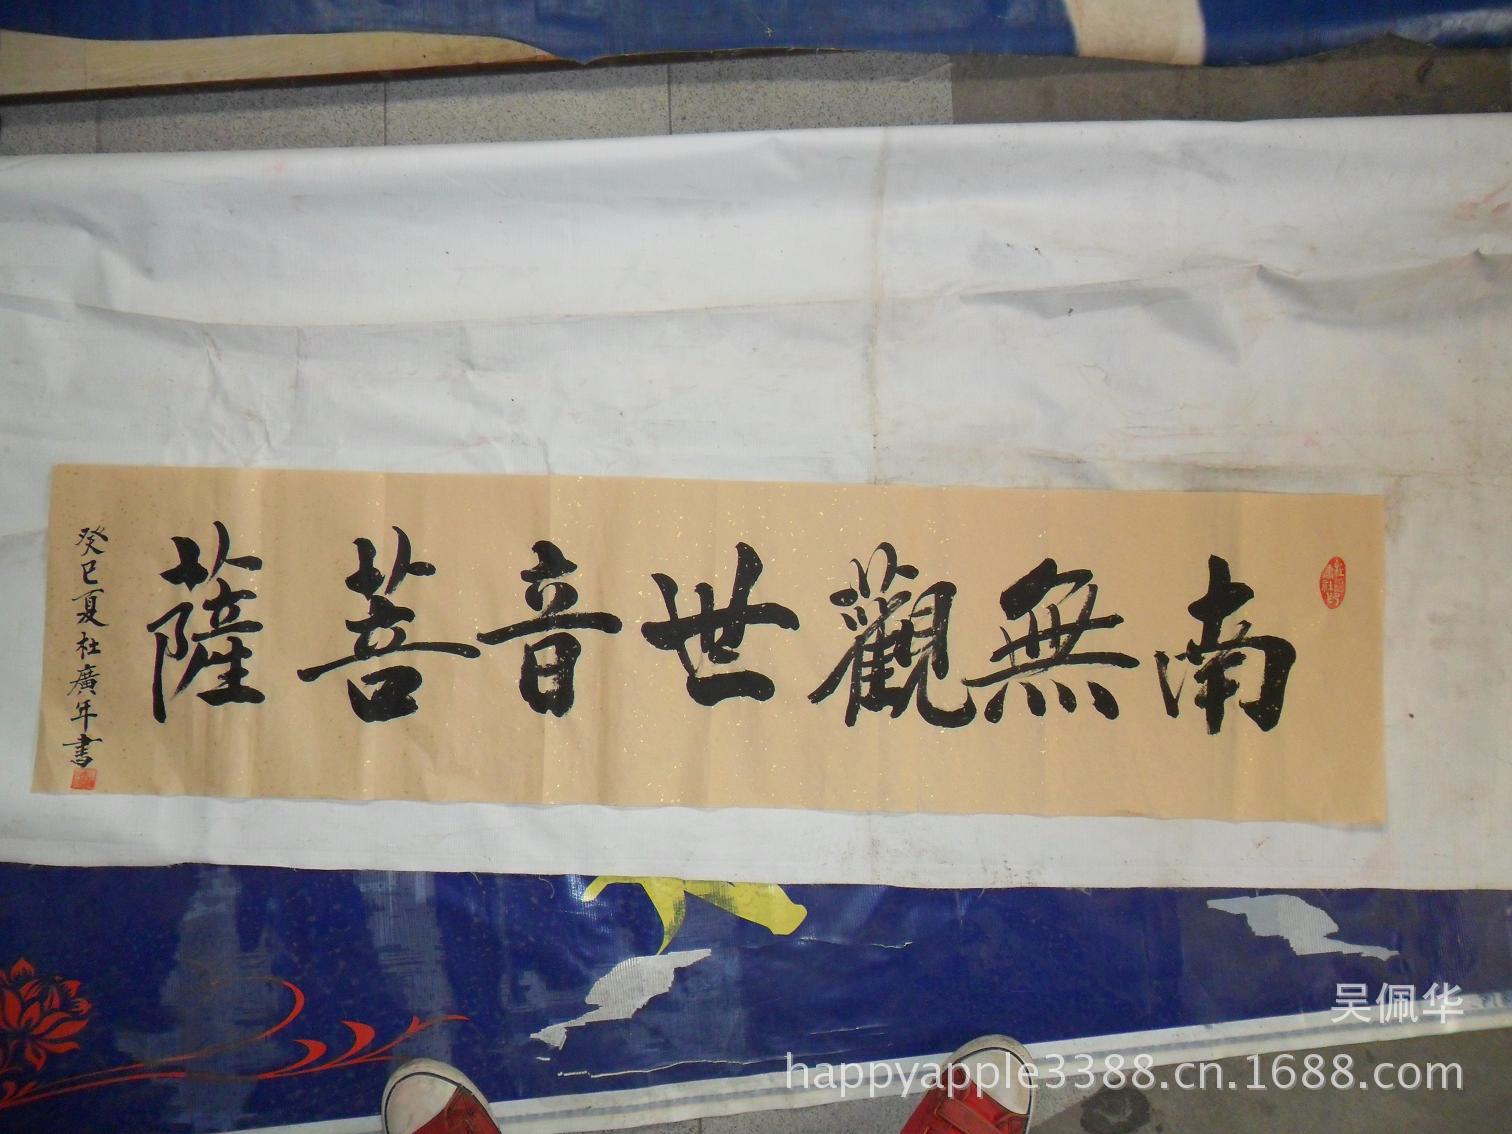 南無觀世音菩薩
癸巳夏杜廣年書
吴佩华
happyapple3388.cn.1688.com